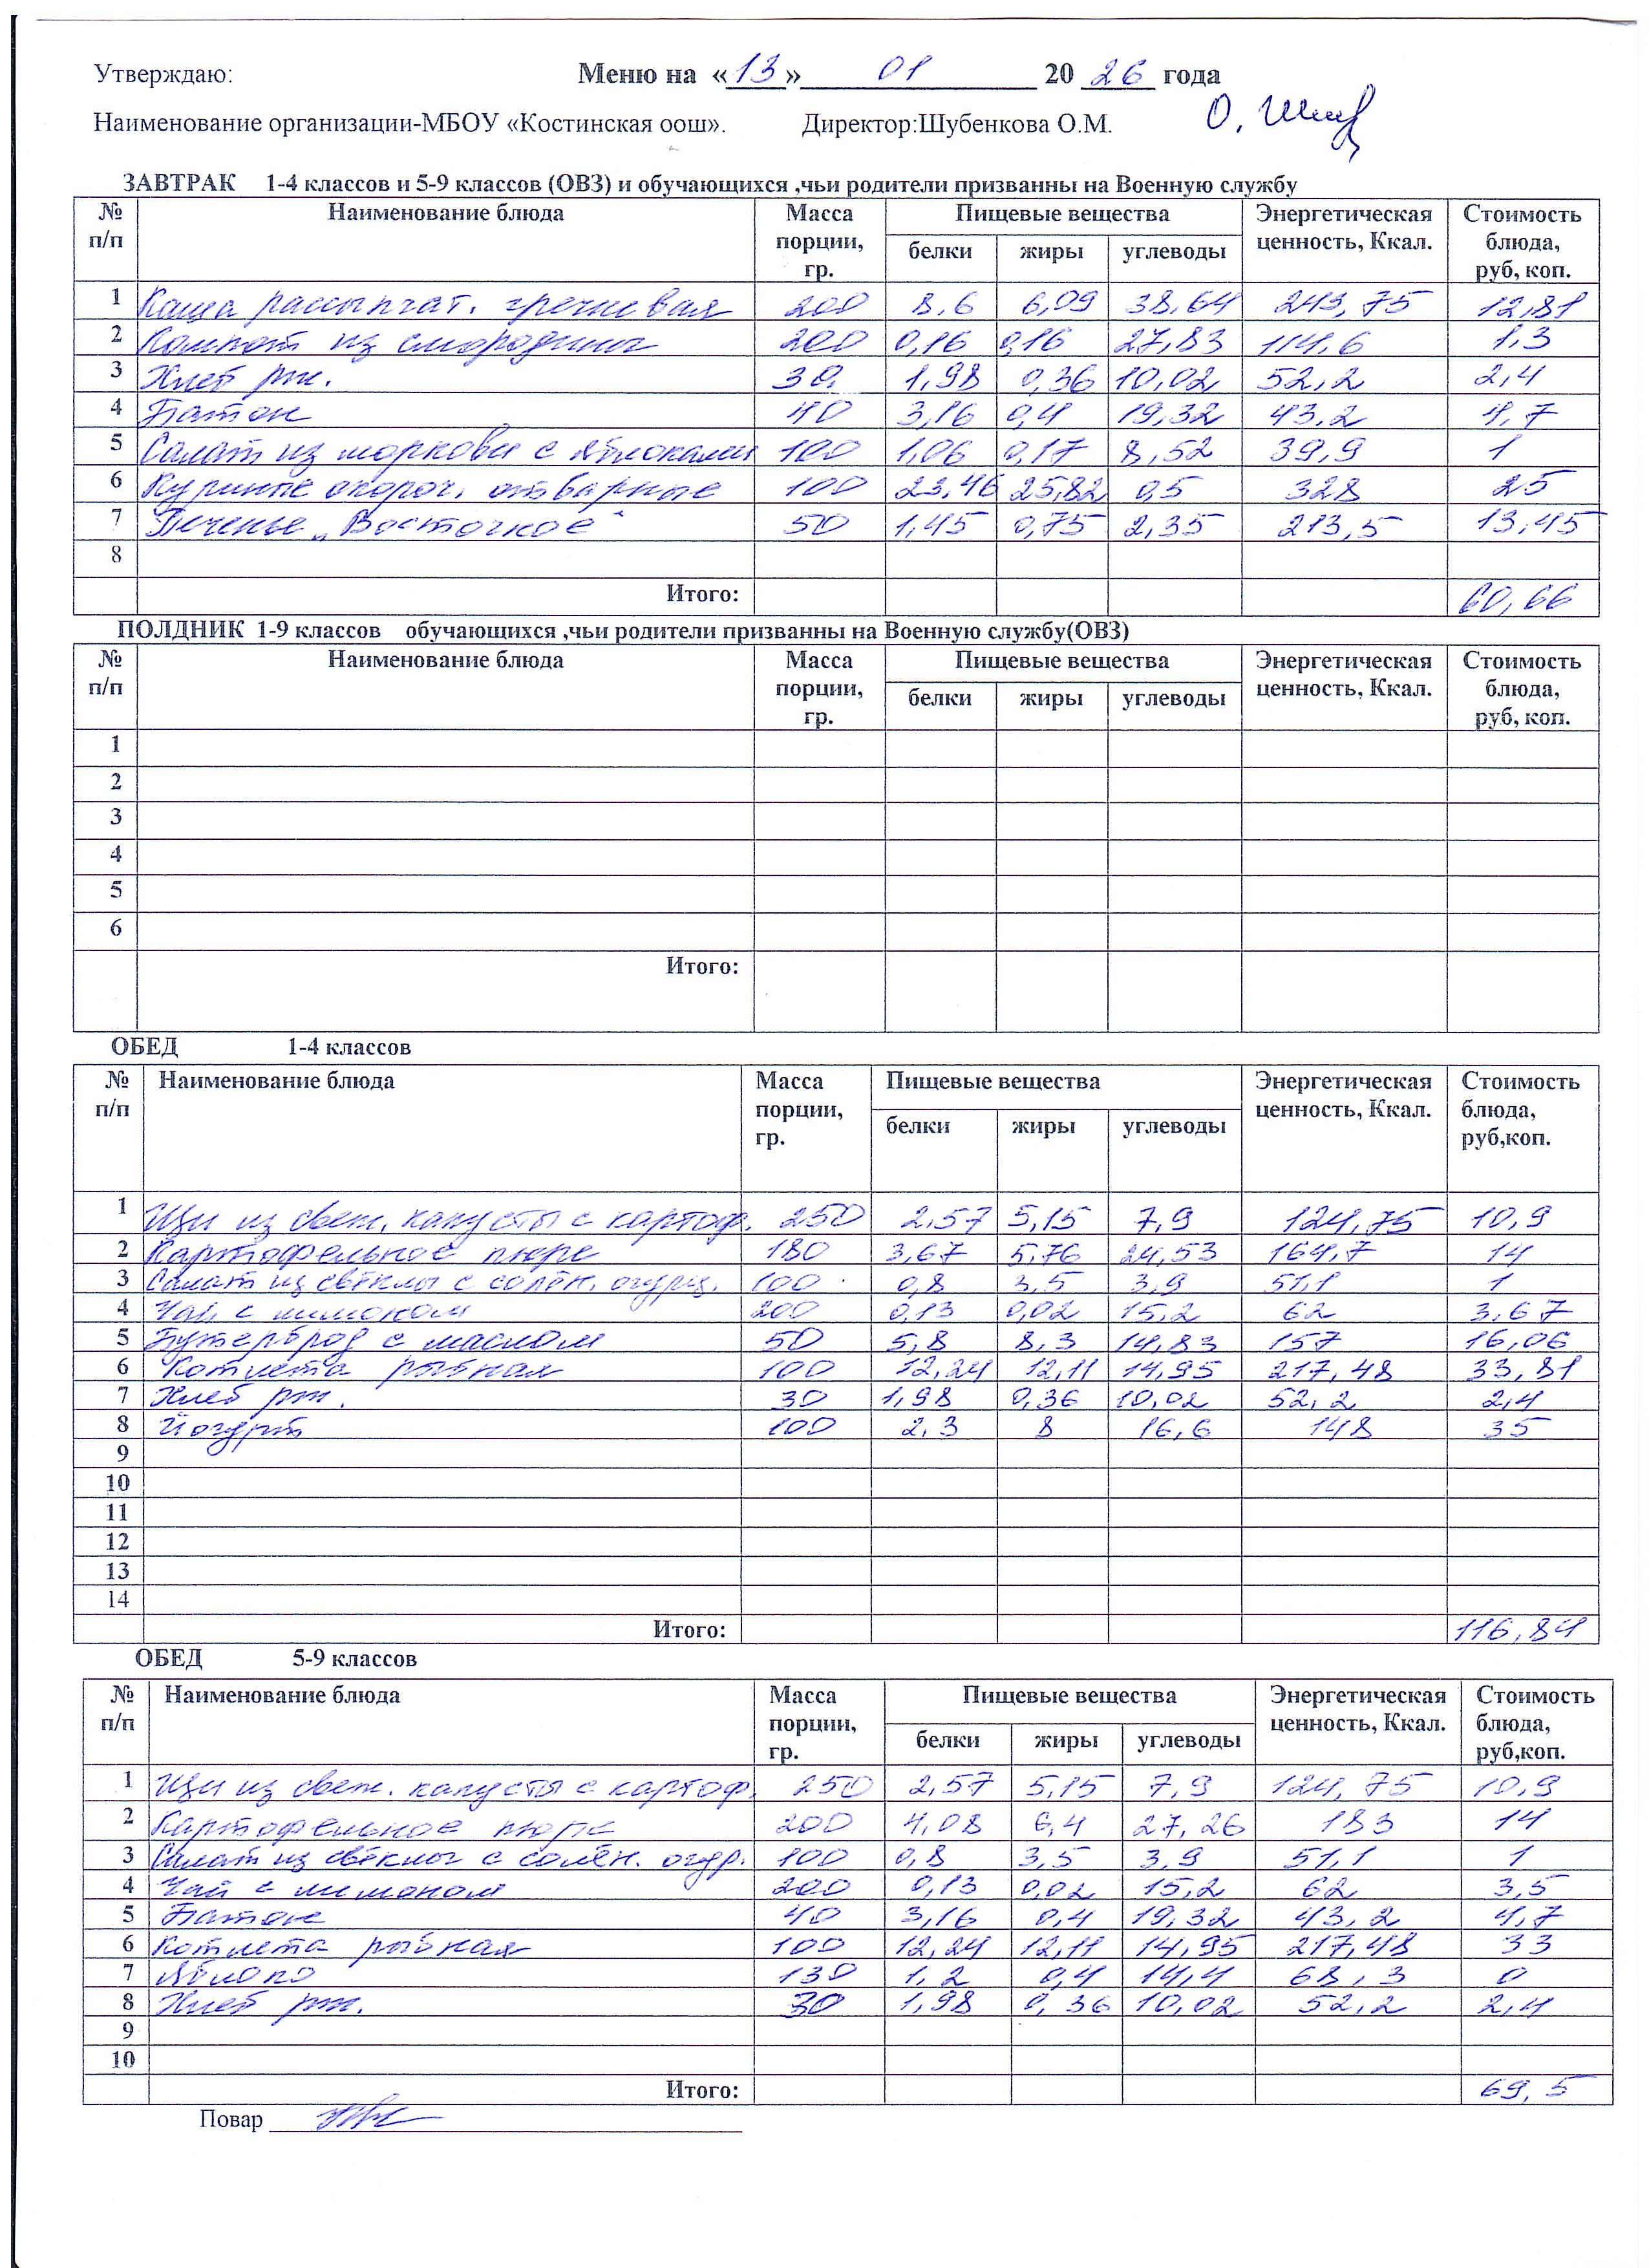 Утверждаю: Меню на «13» 01 20 26 года
Наименование организации-МБОУ «Костинская оош». Директор:Шубенкова О.М.
ЗАВТРАК 1-4 классов и 5-9 классов (ОВЗ) и обучающихся ,чьи родители призванны на Военную службу
№ п/п Наименование блюда Масса порции, гр. Пищевые вещества Энергетическая ценность, Ккал. Стоимость блюда, руб, коп.
белки жиры углеводы
1 Каша рассыпчат. гречневая 200 8,6 6,09 38,64 243,75 12,81
2 Компот из смородины 200 0,16 0,16 27,83 114,6 1,3
3 Хлеб рж. 30 1,98 0,36 10,02 52,2 2,4
4 Батон 40 3,16 0,4 19,32 43,2 4,7
5 Салат из моркови с яблоками 100 1,06 0,17 8,52 39,9 1
6 Куриные окороч. отварные 100 23,46 25,82 0,5 328 25
7 Печенье „Восточное" 50 1,45 0,75 2,35 213,5 13,45
8
Итого: 60,66
ПОЛДНИК 1-9 классов обучающихся ,чьи родители призванны на Военную службу(ОВЗ)
№ п/п Наименование блюда Масса порции, гр. Пищевые вещества Энергетическая ценность, Ккал. Стоимость блюда, руб, коп.
белки жиры углеводы
1
2
3
4
5
6
Итого:
ОБЕД 1-4 классов
№ п/п Наименование блюда Масса порции, гр. Пищевые вещества Энергетическая ценность, Ккал. Стоимость блюда, руб,коп.
белки жиры углеводы
1 Щи из свеж. капусты с картоф. 250 2,57 5,15 7,9 124,75 10,9
2 Картофельное пюре 180 3,67 5,76 24,53 164,7 14
3 Салат из свёклы с солён. огурц. 100 0,8 3,5 3,9 51,1 1
4 Чай с лимоном 200 0,13 0,02 15,2 62 3,67
5 Бутерброд с маслом 50 5,8 8,3 14,83 157 16,06
6 Котлета рыбная 100 12,24 12,11 14,95 217,48 33,81
7 Хлеб рж. 30 1,98 0,36 10,02 52,2 2,4
8 Йогурт 100 2,3 8 16,6 148 35
9
10
11
12
13
14
Итого: 116,84
ОБЕД 5-9 классов
№ п/п Наименование блюда Масса порции, гр. Пищевые вещества Энергетическая ценность, Ккал. Стоимость блюда, руб,коп.
белки жиры углеводы
1 Щи из свеж. капусты с картоф. 250 2,57 5,15 7,9 124,75 10,9
2 Картофельное пюре 200 4,08 6,4 27,26 183 14
3 Салат из свёклы с солён. огур. 100 0,8 3,5 3,9 51,1 1
4 Чай с лимоном 200 0,13 0,02 15,2 62 3,5
5 Батон 40 3,16 0,4 19,32 43,2 4,7
6 Котлета рыбная 100 12,24 12,11 14,95 217,48 33
7 Яблоко 130 1,2 0,4 14,4 68,3 0
8 Хлеб рж. 30 1,98 0,36 10,02 52,2 2,4
9
10
Итого: 69,5
Повар